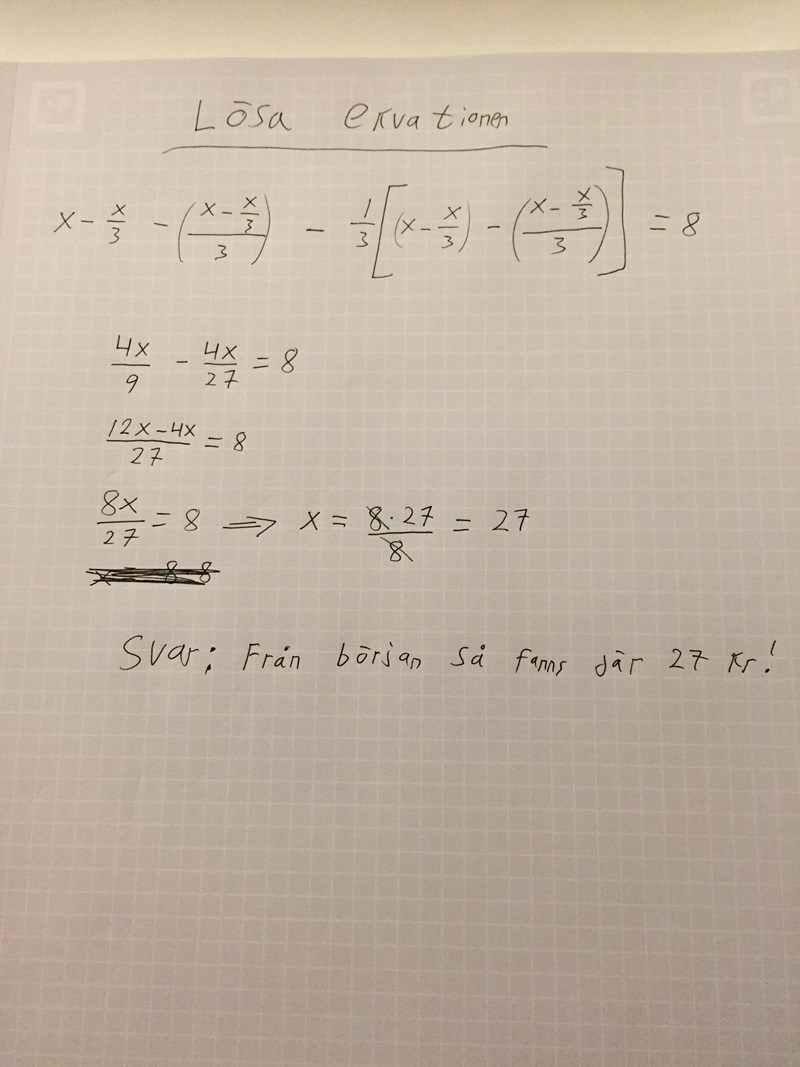 Lösa ekvationen
x - x/3 - ((x - x/3)/3) - 1/3[(x - x/3) - ((x - x/3)/3)] = 8
4x/9 - 4x/27 = 8
(12x - 4x)/27 = 8
8x/27 = 8 ⟹ x = (8 · 27)/8 = 27
Svar: Från början så fanns där 27 kr!